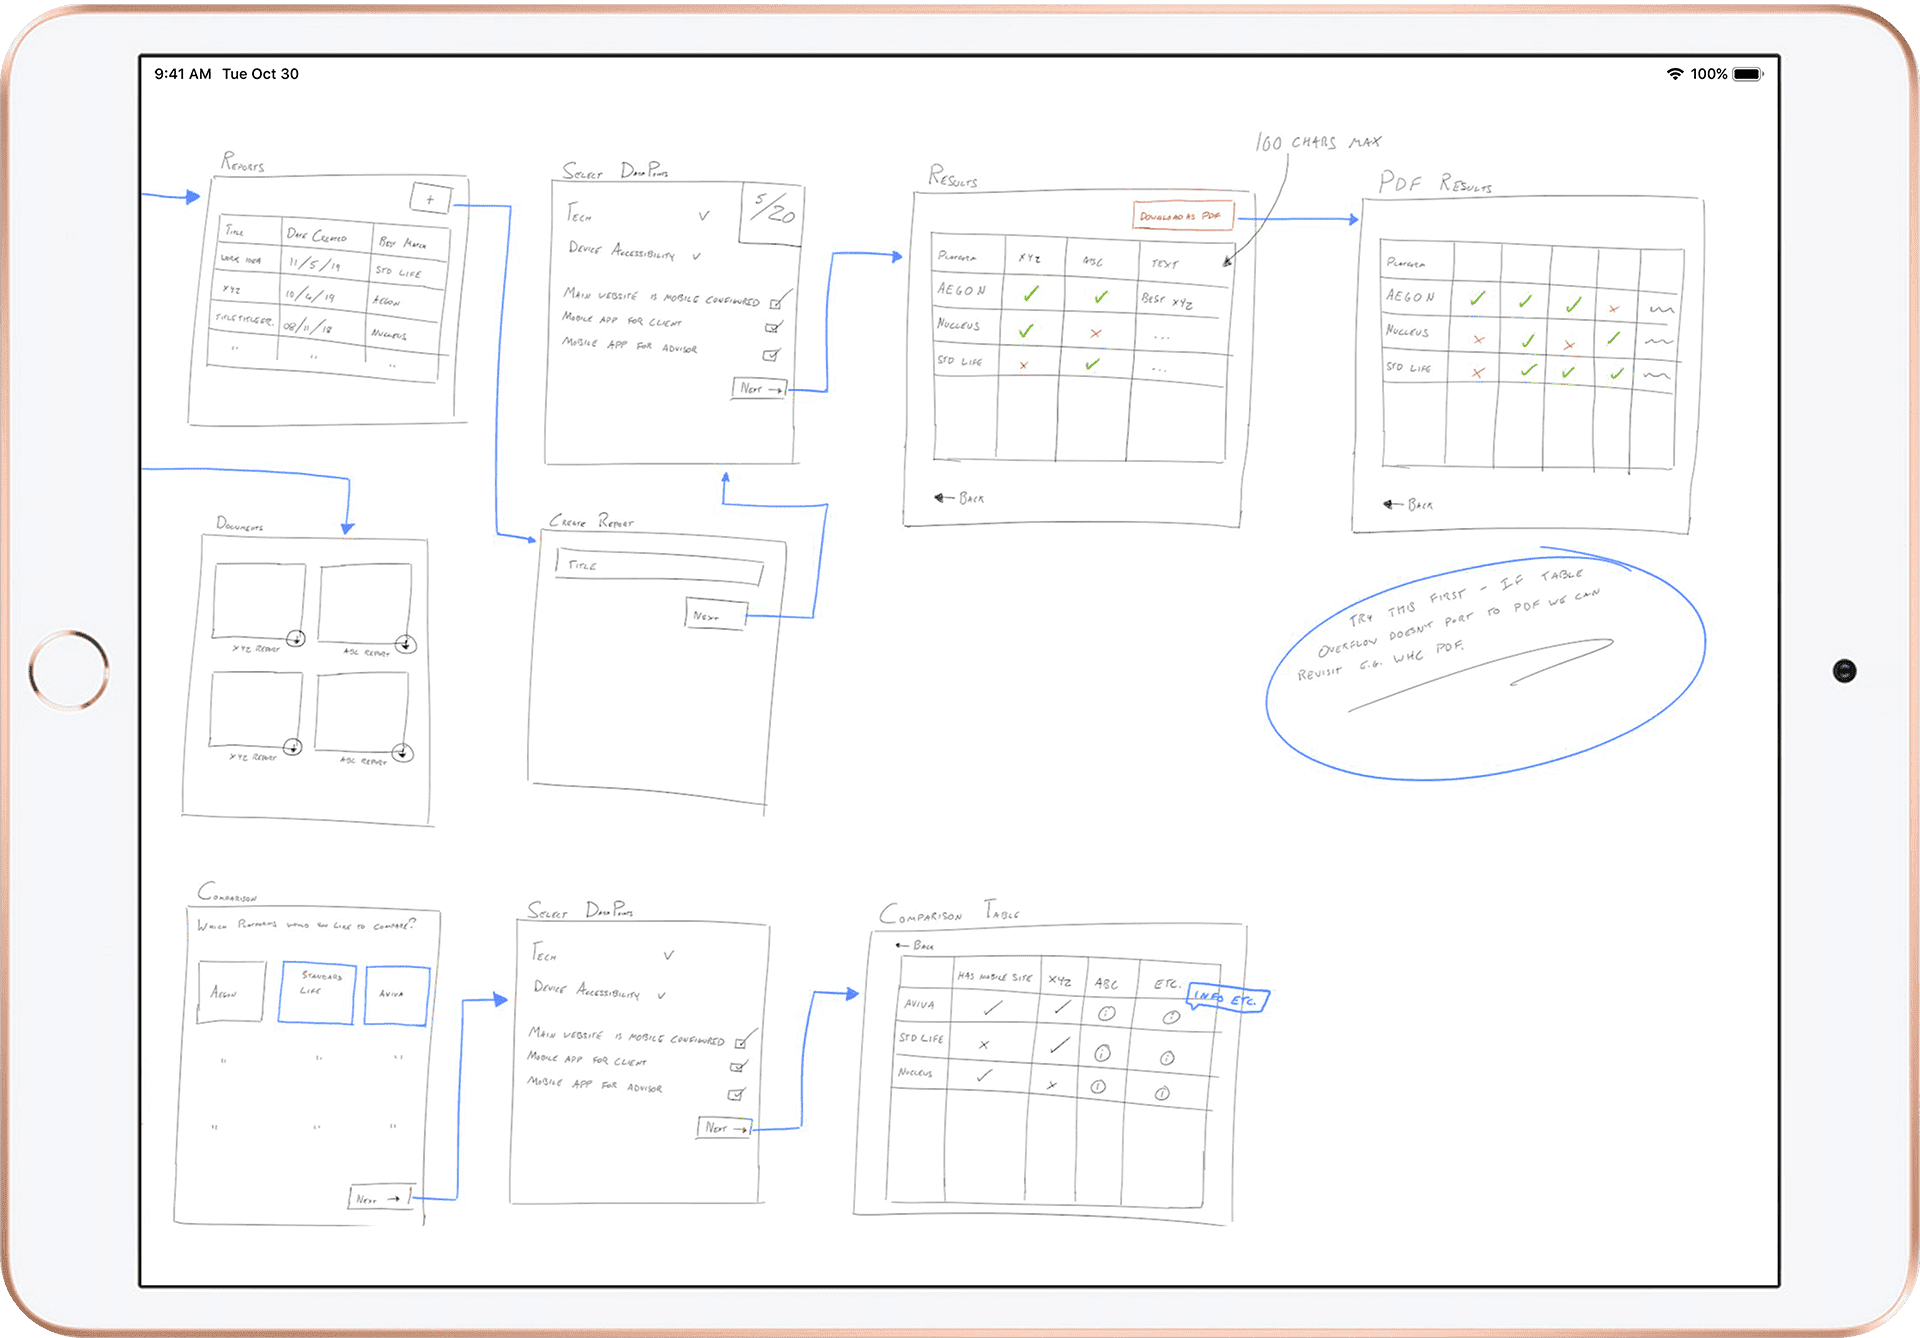 9:41 AM Tue Oct 30
100%
REPORTS
+
TITLE DATE CREATED BEST MATCH
WORK IDEA 11/5/19 STD LIFE
XYZ 10/6/19 AEGON
TITLETITLEGR. 08/11/18 NUCLEUS
" " "
SELECT DATAPOINTS
5/20
TECH
DEVICE ACCESSIBILITY
MAIN WEBSITE IS MOBILE CONFIGURED
MOBILE APP FOR CLIENT
MOBILE APP FOR ADVISOR
NEXT →
100 CHARS MAX
RESULTS
DOWNLOAD AS PDF
PLATFORM XYZ ABC TEXT
AEGON ✓ ✓ BEST XYZ
NUCLEUS ✓ × ...
STD LIFE × ✓ ...
← BACK
PDF RESULTS
PLATFORM
AEGON ✓ ✓ ✓ ×
NUCLEUS × ✓ × ✓
STD LIFE × ✓ ✓ ✓
← BACK
TRY THIS FIRST - IF TABLE
OVERFLOW DOESN'T PORT TO PDF WE CAN
REVISIT E.G. WHC PDF.
DOCUMENTS
XYZ REPORT ABC REPORT
XYZ REPORT ABC REPORT
CREATE REPORT
TITLE
NEXT
COMPARISON
WHICH PLATFORMS WOULD YOU LIKE TO COMPARE?
AEGON
STANDARD
LIFE
AVIVA
" " "
" " "
NEXT →
SELECT DATAPOINTS
TECH
DEVICE ACCESSIBILITY
MAIN WEBSITE IS MOBILE CONFIGURED
MOBILE APP FOR CLIENT
MOBILE APP FOR ADVISOR
NEXT →
COMPARISON TABLE
← BACK
HAS MOBILE SITE XYZ ABC ETC.
INFO ETC.
AVIVA ✓ ✓ i i
STD LIFE × ✓ i i
NUCLEUS ✓ × i i